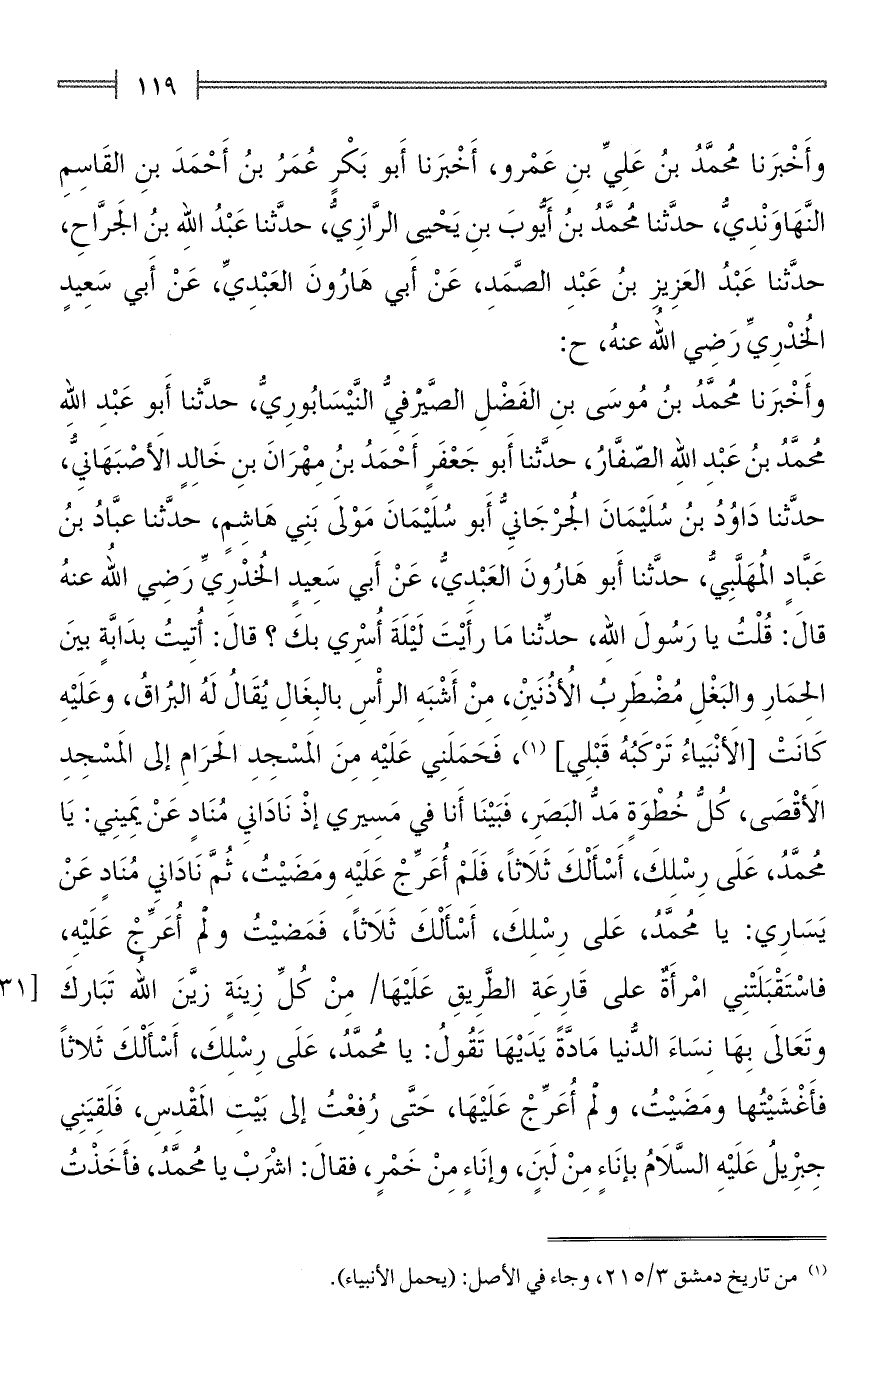 ١١٩
وأَخْبَرَنا محمَّدُ بنُ عَليِّ بنِ عَمْرو، أَخْبَرَنا أبو بَكْرٍ عُمَرُ بنُ أَحْمَدَ بنِ القَاسِمِ
النَّهَاوَنْديُّ، حدَّثنا محمَّدُ بنُ أَيُّوبَ بنِ يَحْيى الرَّازِيُّ، حدَّثنا عَبْدُ اللهِ بنُ الجَرَّاحِ،
حدَّثنا عَبْدُ العَزِيزِ بنُ عَبْدِ الصَّمَدِ، عَنْ أَبي هَارُونَ العَبْديِّ، عَنْ أَبي سَعِيدٍ
الخُدْرِيِّ رَضِي اللهُ عنهُ، ح:
وأَخْبَرَنا محمَّدُ بنُ مُوسَى بنِ الفَضْلِ الصَّيْرفيُّ النَّيْسَابُوريُّ، حدَّثنا أَبو عَبْدِ اللهِ
محمَّدُ بنُ عَبْدِ اللهِ الصّفَّارُ، حدَّثنا أَبو جَعْفَرٍ أَحْمَدُ بنُ مِهْرَانَ بنِ خَالِدٍ الأَصْبَهَانيُّ،
حدَّثنا دَاوُدُ بنُ سُلَيْمَانَ الجُرْجَانيُّ أَبو سُلَيْمَانَ مَوْلَى بَنِي هَاشِمٍ، حدَّثنا عبَّادُ بنُ
عَبَّادٍ المُهَلَّبيُّ، حدَّثنا أَبو هَارُونَ العَبْديُّ، عَنْ أَبي سَعِيدٍ الخُدْريِّ رَضِي اللهُ عنهُ
قالَ: قُلْتُ يا رَسُولَ اللهِ، حدِّثنا مَا رأَيْتَ لَيْلَةَ أُسْرِي بكَ؟ قالَ: أُتيتُ بدَابَّةٍ بينَ
الحِمَارِ والبَغْلِ مُضْطَرِبُ الأُذُنَيْنِ، مِنْ أَشْبَهِ الرأْسِ بالبِغَالِ يُقَالُ لَهُ البُراقُ، وعَلَيْهِ
كَانَتْ [الأَنْبيَاءُ تَرْكَبُهُ قَبْلِي] (١)، فَحَمَلَنِي عَلَيْهِ مِنَ المَسْجِدِ الحَرَامِ إلى المَسْجِدِ
الأَقْصَى، كُلُّ خُطْوَةٍ مَدُّ البَصَرِ، فَبَيْنَا أنا في مَسِيري إذْ نَادَاني مُنَادٍ عَنْ يمِيني: يا
محمَّدُ، عَلَى رِسْلِكَ، أَسْأَلْكَ ثَلَاثاً، فَلَمْ أُعَرِّجْ عَلَيْهِ ومَضَيْتُ، ثُمَّ نَادَاني مُنَادٍ عَنْ
يَسَاري: يا محمَّدُ، عَلى رِسْلِكَ، أَسأَلْكَ ثَلَاثاً، فَمَضيْتُ ولمْ أُعَرِّجْ عَلَيْهِ،
فاسْتَقْبَلَتْنِي امْرأَةٌ على قَارِعَةِ الطَّرِيقِ عَلَيْهَا/ مِنْ كُلِّ زِينَةٍ زيَّنَ اللهُ تَبَارَكَ [٣١
وتَعَالَى بِهَا نِسَاءَ الدُّنيا مَادَّةً يَدَيْهَا تَقُولُ: يا محمَّدُ، عَلَى رِسْلِكَ، أَسأَلْكَ ثَلاثاً
فأَغْشَيْتُها ومَضَيْتُ، ولمْ أُعَرِّجْ عَلَيْهَا، حَتَّى رُفعْتُ إلى بَيْتِ المَقْدِسِ، فَلَقِيَنِي
جِبْرِيلُ عَلَيْهِ السَّلَامُ بإنَاءٍ مِنْ لَبَنٍ، وإنَاءٍ مِنْ خَمْرٍ، فقالَ: اشْرَبْ يا محمَّدُ، فأَخَذْتُ
(١) من تاريخ دمشق ٢١٥/٣، وجاء في الأصل: (يحمل الأنبياء).